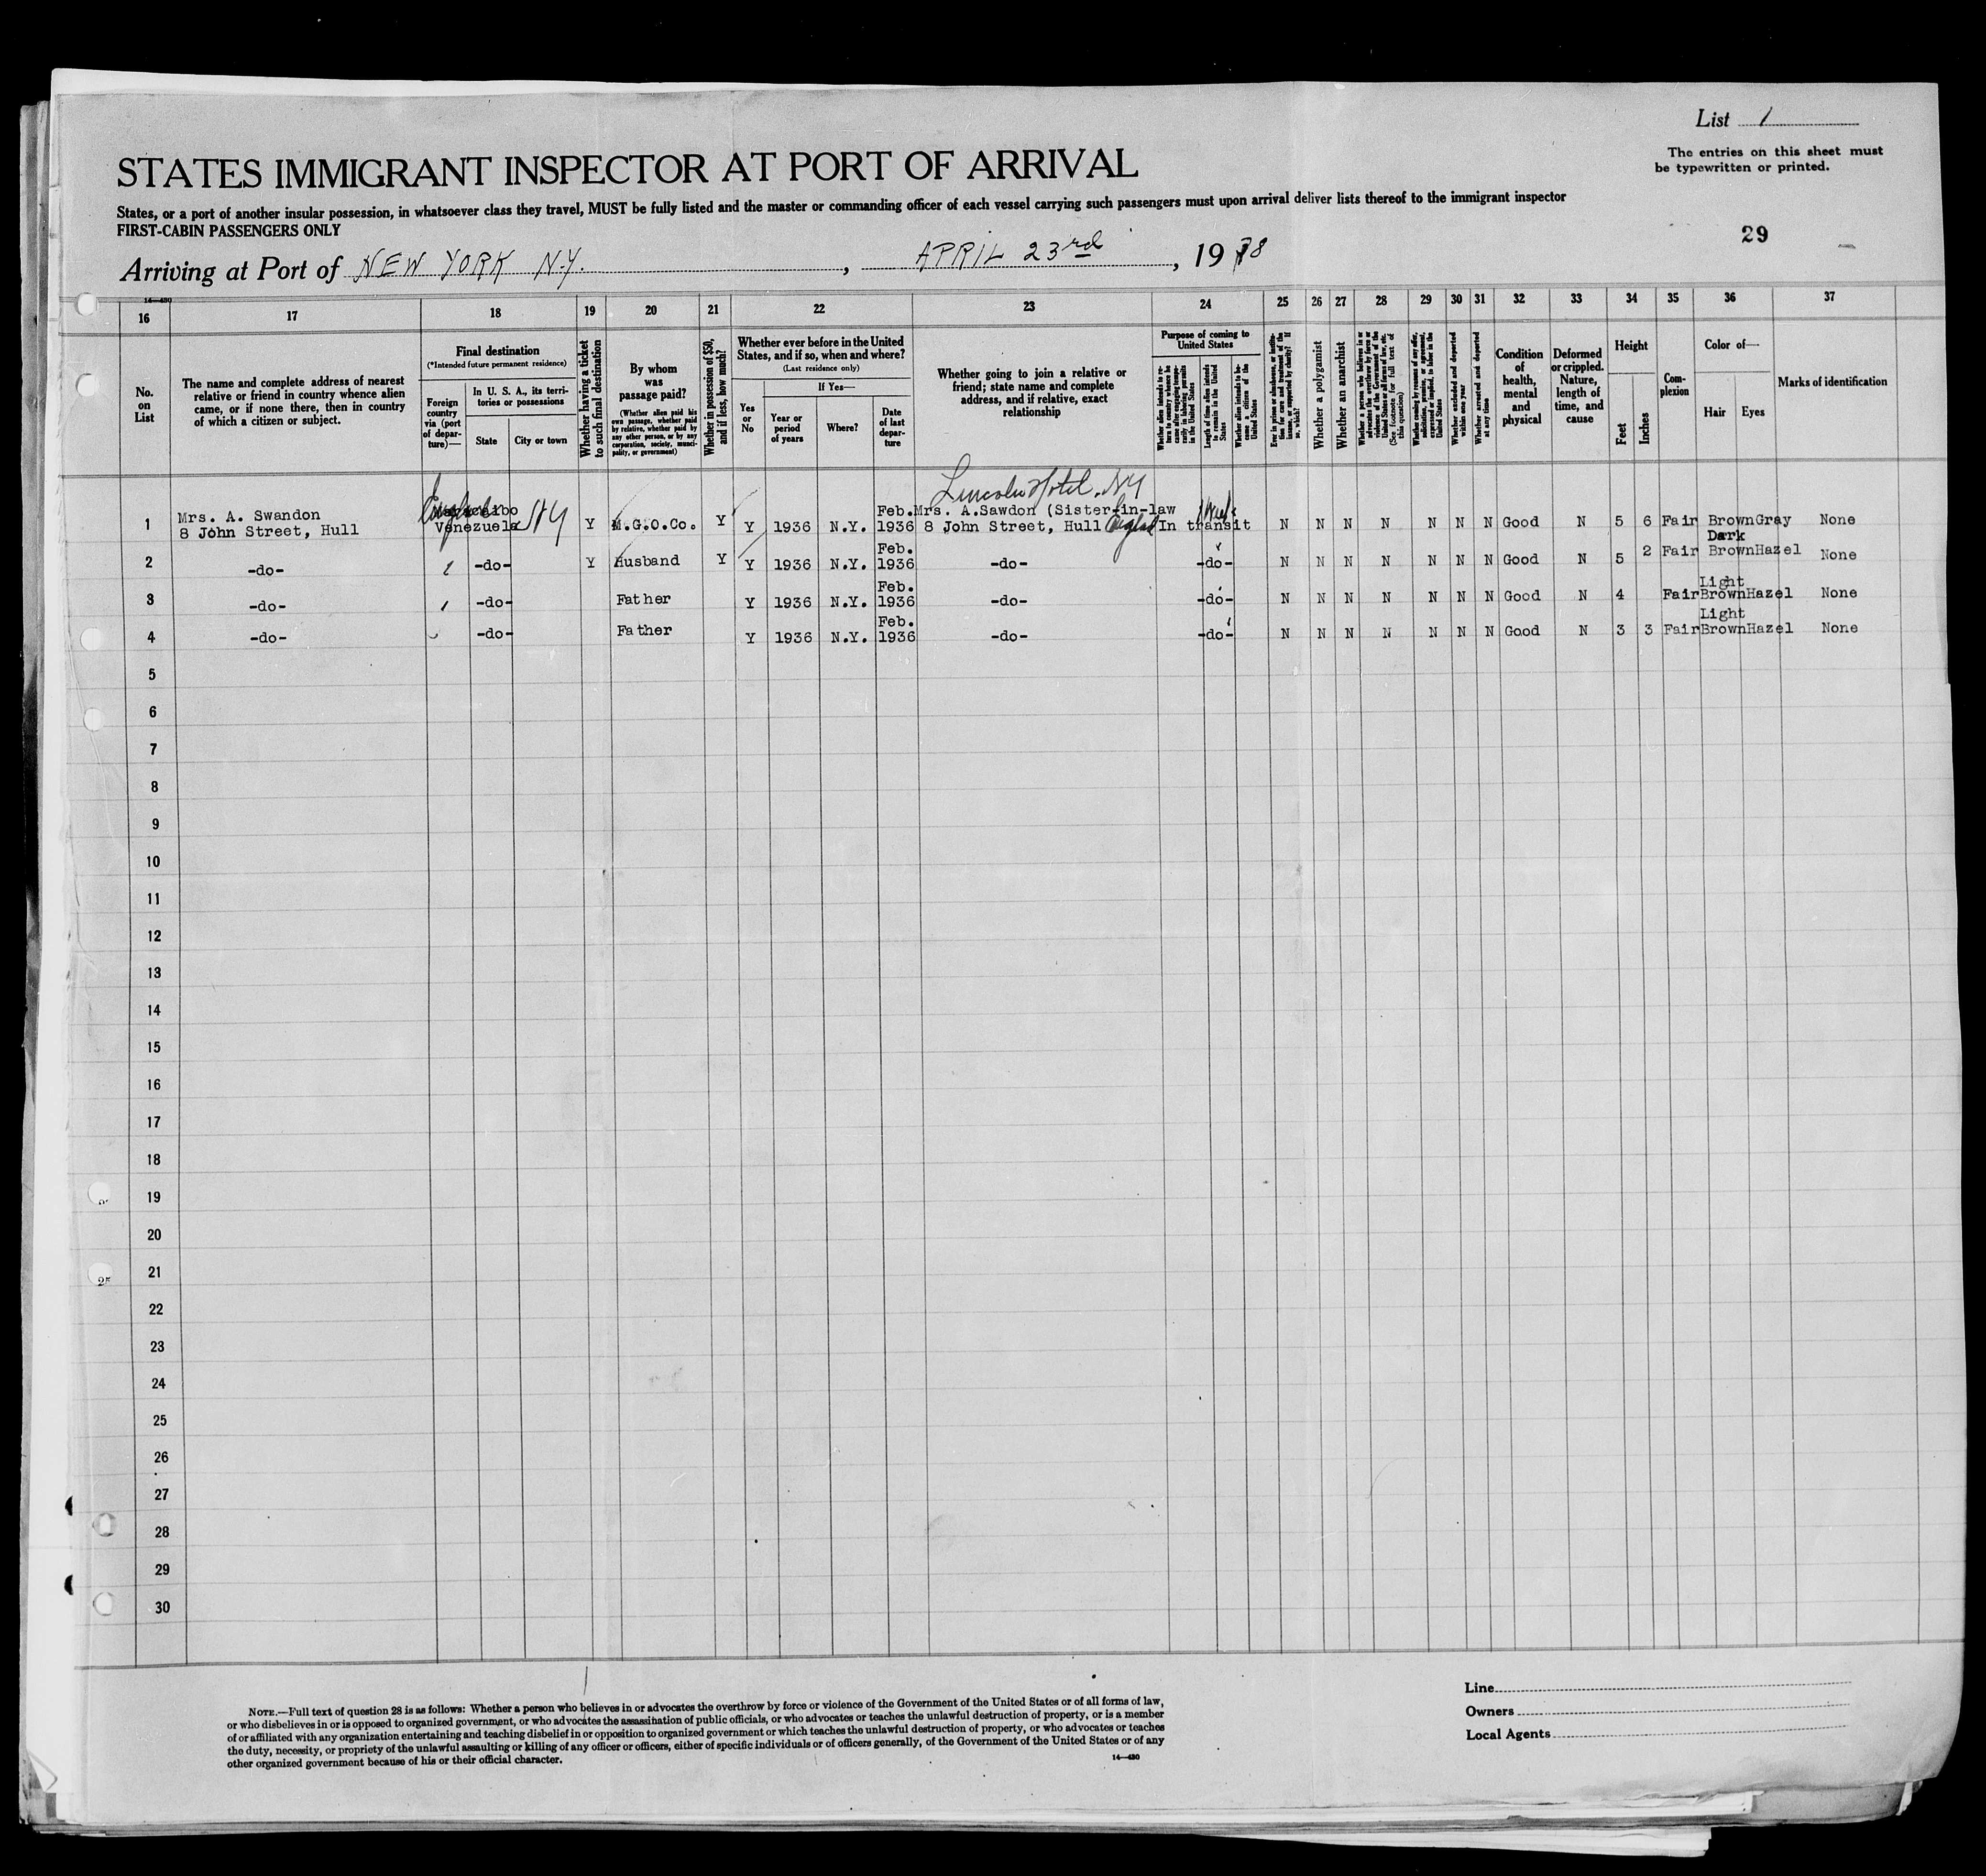 List 1
The entries on this sheet must
be typewritten or printed.
STATES IMMIGRANT INSPECTOR AT PORT OF ARRIVAL
States, or a port of another insular possession, in whatsoever class they travel, MUST be fully listed and the master or commanding officer of each vessel carrying such passengers must upon arrival deliver lists thereof to the immigrant inspector
FIRST-CABIN PASSENGERS ONLY
29
Arriving at Port of NEW YORK N.Y. , APRIL 23rd , 1938
14—430
16 17 18 19 20 21 22 23 24 25 26 27 28 29 30 31 32 33 34 35 36 37
No. on List
The name and complete address of nearest relative or friend in country whence alien came, or if none there, then in country of which a citizen or subject.
Final destination
(*Intended future permanent residence)
Foreign country via (port of departure)—
In U. S. A., its territories or possessions
State
City or town
Whether having a ticket to such final destination
By whom was passage paid?
(Whether alien paid his own passage, whether paid by relative, whether paid by any other person, or by any corporation, society, municipality, or government)
Whether in possession of $50, and if less, how much?
Whether ever before in the United States, and if so, when and where?
(Last residence only)
Yes or No
If Yes—
Year or period of years
Where?
Date of last departure
Whether going to join a relative or friend; state name and complete address, and if relative, exact relationship
Purpose of coming to United States
Whether alien intends to return to country whence he came after engaging temporarily in laboring pursuits in the United States
Length of time alien intends to remain in the United States
Whether alien intends to become a citizen of the United States
Ever in prison or almshouse, or institution for care and treatment of the insane, or supported by charity? If so, which?
Whether a polygamist
Whether an anarchist
Whether a person who believes in or advocates the overthrow by force or violence of the Government of the United States or all forms of law, etc. (See footnote for full text of this question)
Whether coming by reason of any offer, solicitation, promise, or agreement, expressed or implied, to labor in the United States
Whether excluded and deported within one year
Whether arrested and deported at any time
Condition of health, mental and physical
Deformed or crippled. Nature, length of time, and cause
Height
Feet
Inches
Complexion
Color of—
Hair
Eyes
Marks of identification
Lincoln Hotel, NY
1 Mrs. A. Swandon Venezuela NY Y M.G.O.Co. Y Y 1936 N.Y. Feb. 1936 Mrs. A.Sawdon (Sister-in-law
8 John Street, Hull 8 John Street, Hull England In transit N N N N N N N Good N 5 6 Fair Brown Gray None
2 -do- -do- Y Husband Y Y 1936 N.Y. Feb. 1936 -do- -do- N N N N N N N Good N 5 2 Fair Dark Brown Hazel None
3 -do- -do- Father Y 1936 N.Y. Feb. 1936 -do- -do- N N N N N N N Good N 4 Fair Light Brown Hazel None
4 -do- -do- Father Y 1936 N.Y. Feb. 1936 -do- -do- N N N N N N N Good N 3 3 Fair Light Brown Hazel None
5
6
7
8
9
10
11
12
13
14
15
16
17
18
19
20
21
22
23
24
25
26
27
28
29
30
NOTE.—Full text of question 28 is as follows: Whether a person who believes in or advocates the overthrow by force or violence of the Government of the United States or of all forms of law,
or who disbelieves in or is opposed to organized government, or who advocates the assassination of public officials, or who advocates or teaches the unlawful destruction of property, or is a member
of or affiliated with any organization entertaining and teaching disbelief in or opposition to organized government or which teaches the unlawful destruction of property, or who advocates or teaches
the duty, necessity, or propriety of the unlawful assaulting or killing of any officer or officers, either of specific individuals or of officers generally, of the Government of the United States or of any
other organized government because of his or their official character.
14—430
Line
Owners
Local Agents